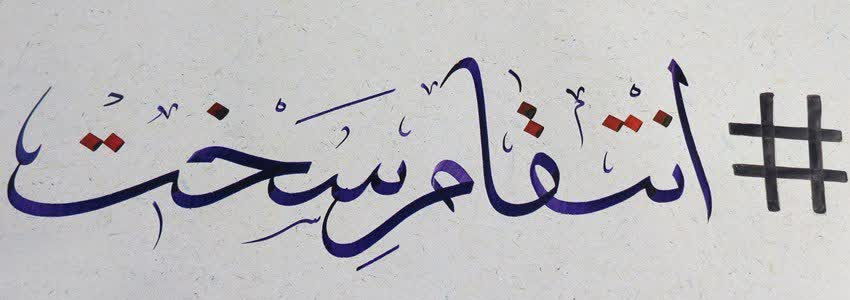 #انتقام سخت